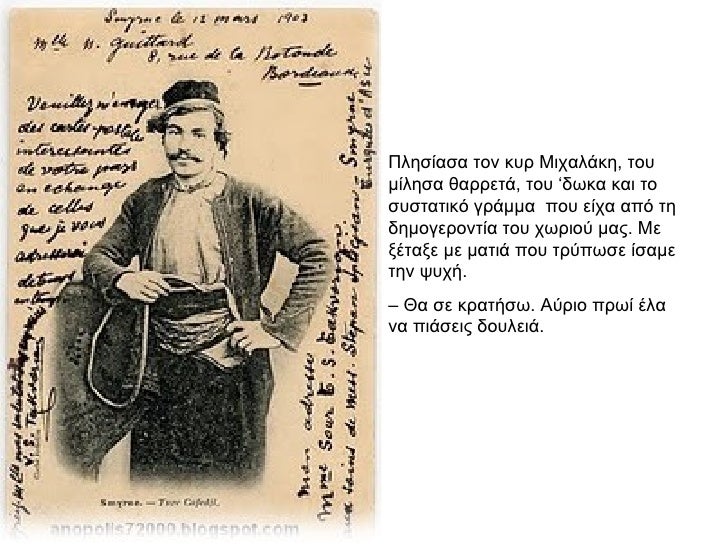 Smyrne le 12 mars 1903
Mlle N. Guittard
8, rue de la Rotonde
Bordeaux
Veuillez m'envoyer
des cartes-postales
interessantes
de votre pays
en echange
de celles
que je vous
adresserai
Mon adresse
Mme Sour E. S. Takvorian
aux soins de mess. Stepan
Smyrne
Turquie d'Asie
Smyrne. — Turc Cafedji.
anopolis72000.blogspot.com
Πλησίασα τον κυρ Μιχαλάκη, του
μίλησα θαρρετά, του ‘δωκα και το
συστατικό γράμμα που είχα από τη
δημογεροντία του χωριού μας. Με
ξέταξε με ματιά που τρύπωσε ίσαμε
την ψυχή.
– Θα σε κρατήσω. Αύριο πρωί έλα
να πιάσεις δουλειά.